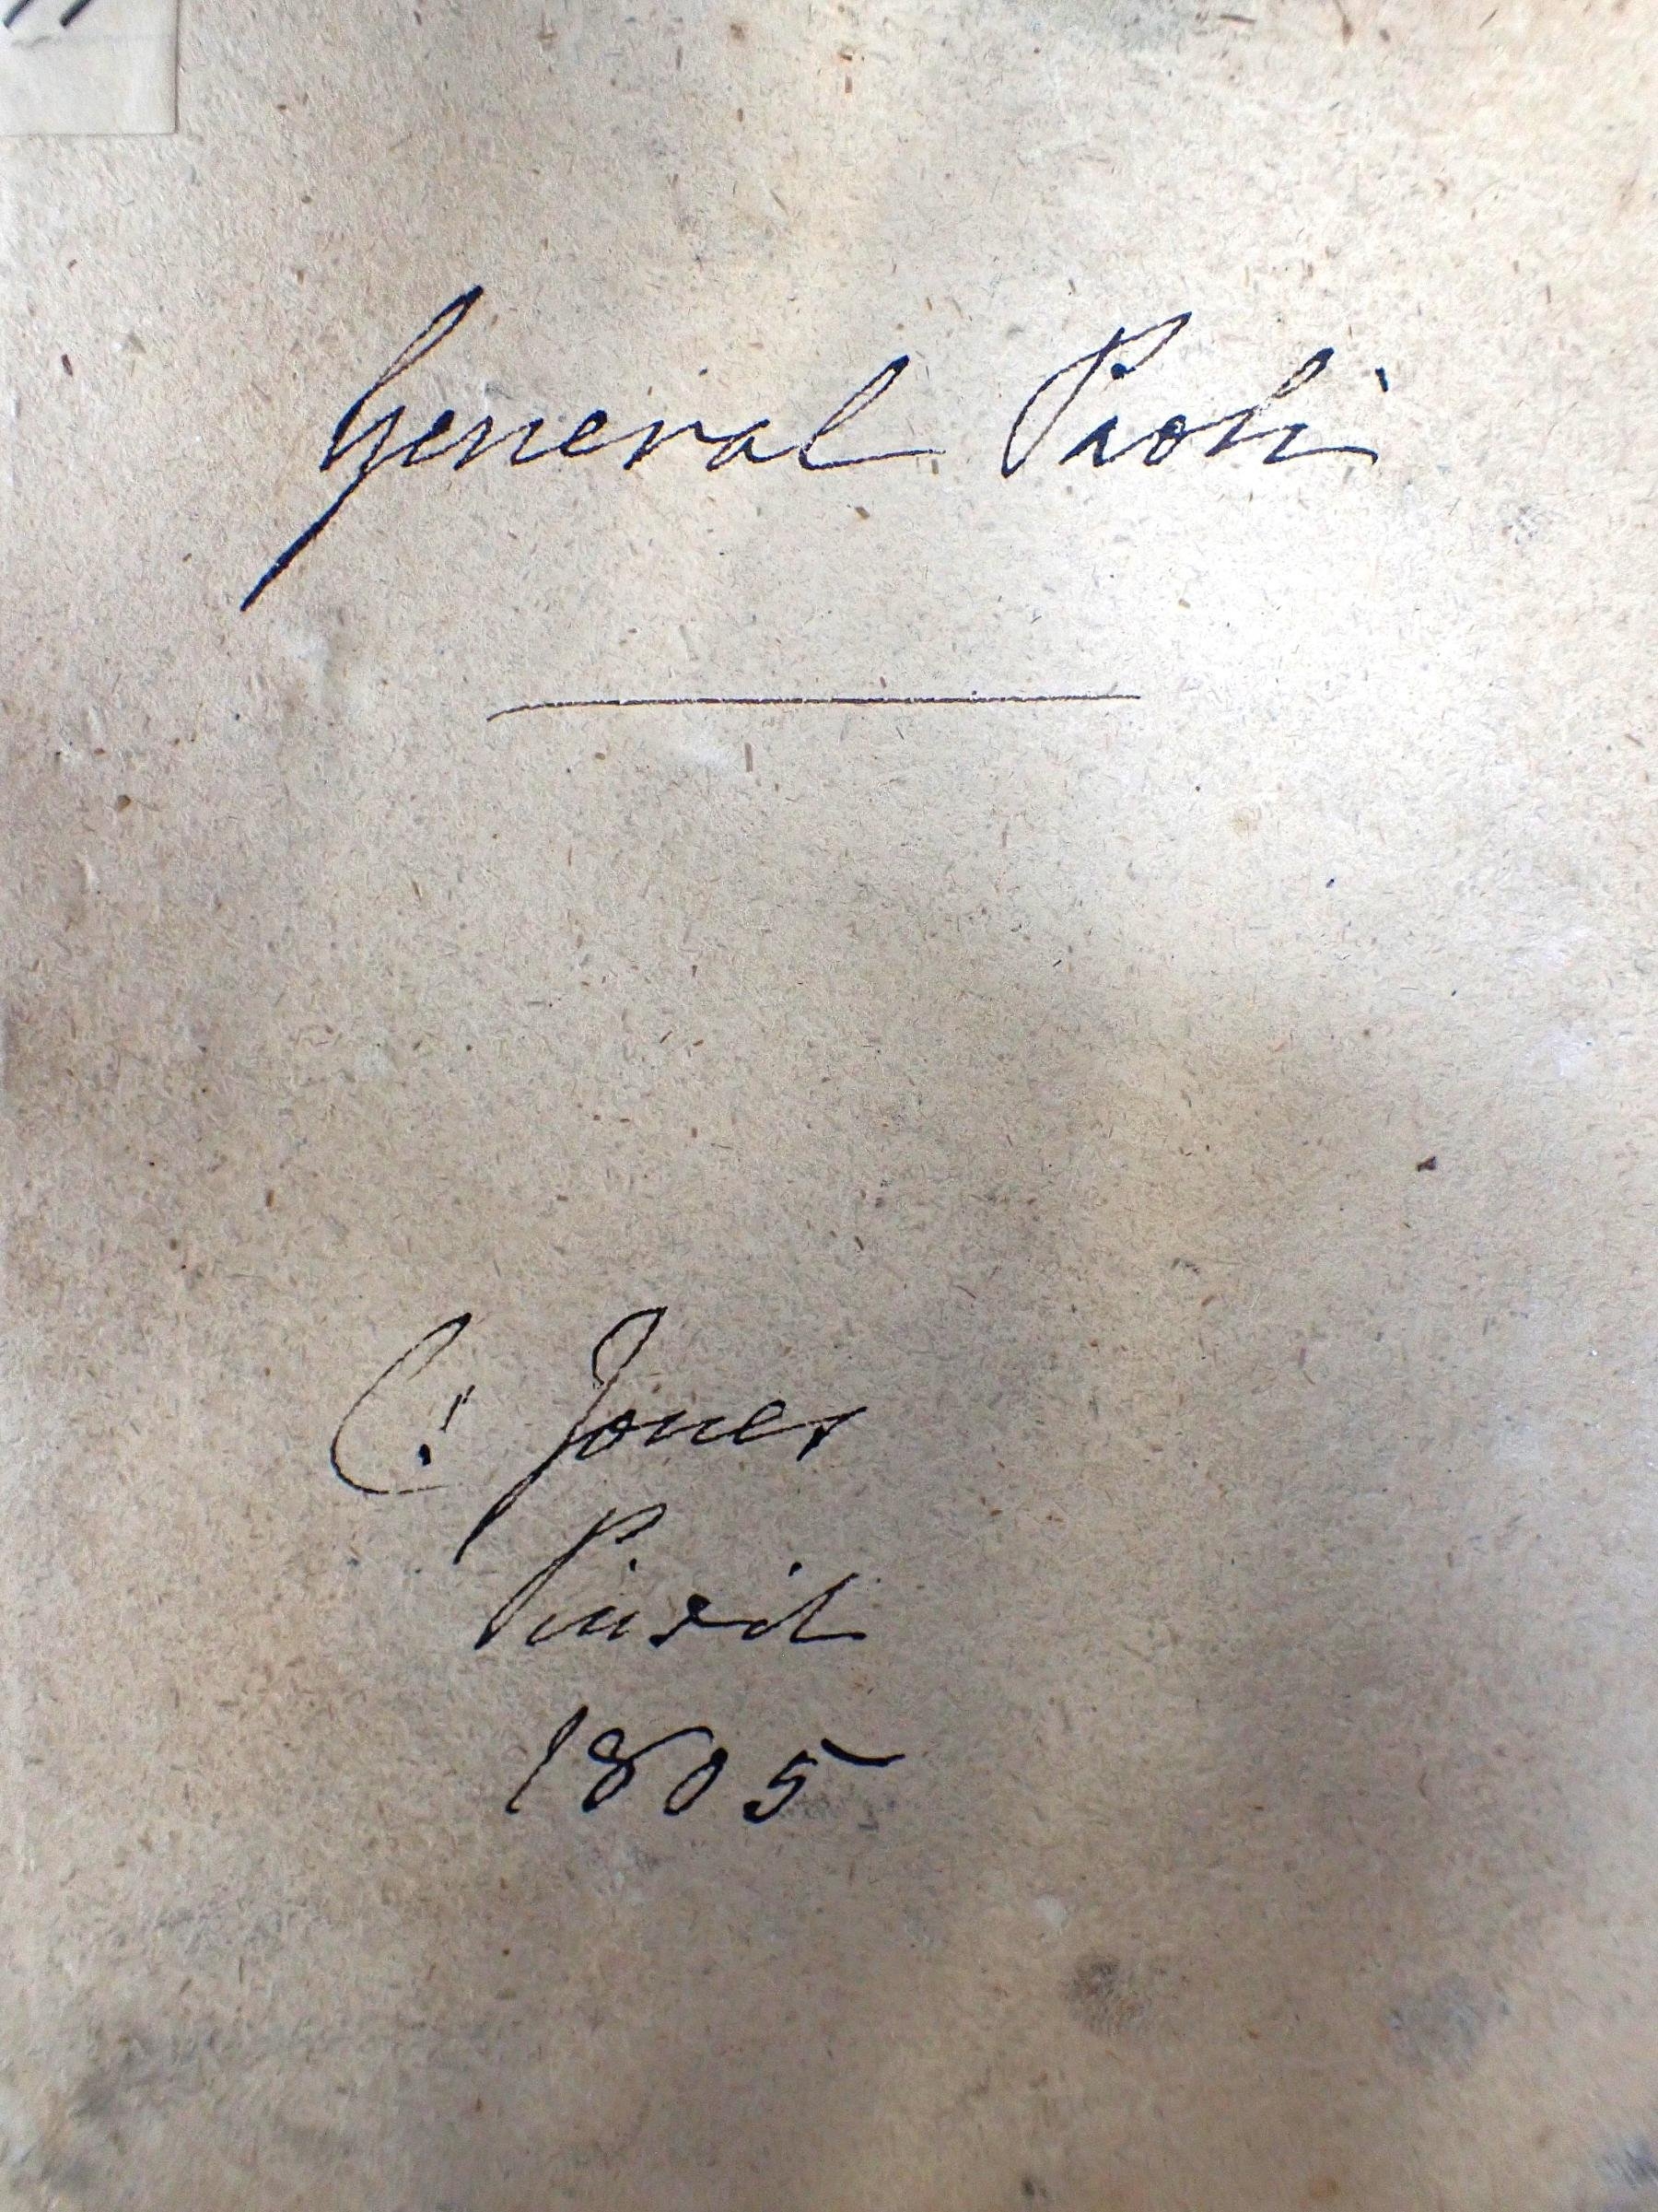 General Paoli
C. Jones
Pinxit
1805